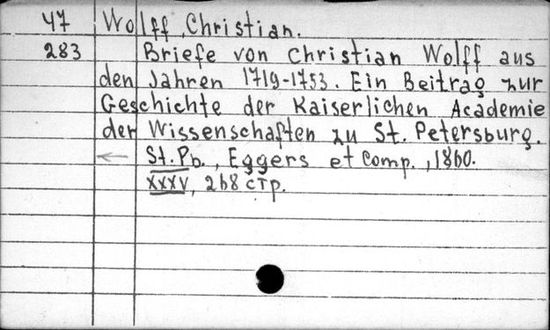 47 Wolff, Christian.
283 Briefe von Christian Wolff aus
den Jahren 1719-1753. Ein Beitrag zur
Geschichte der Kaiserlichen Academie
der Wissenschaften zu St. Petersburg.
St.Pb., Eggers et Comp., 1860.
XXXV, 268 стр.